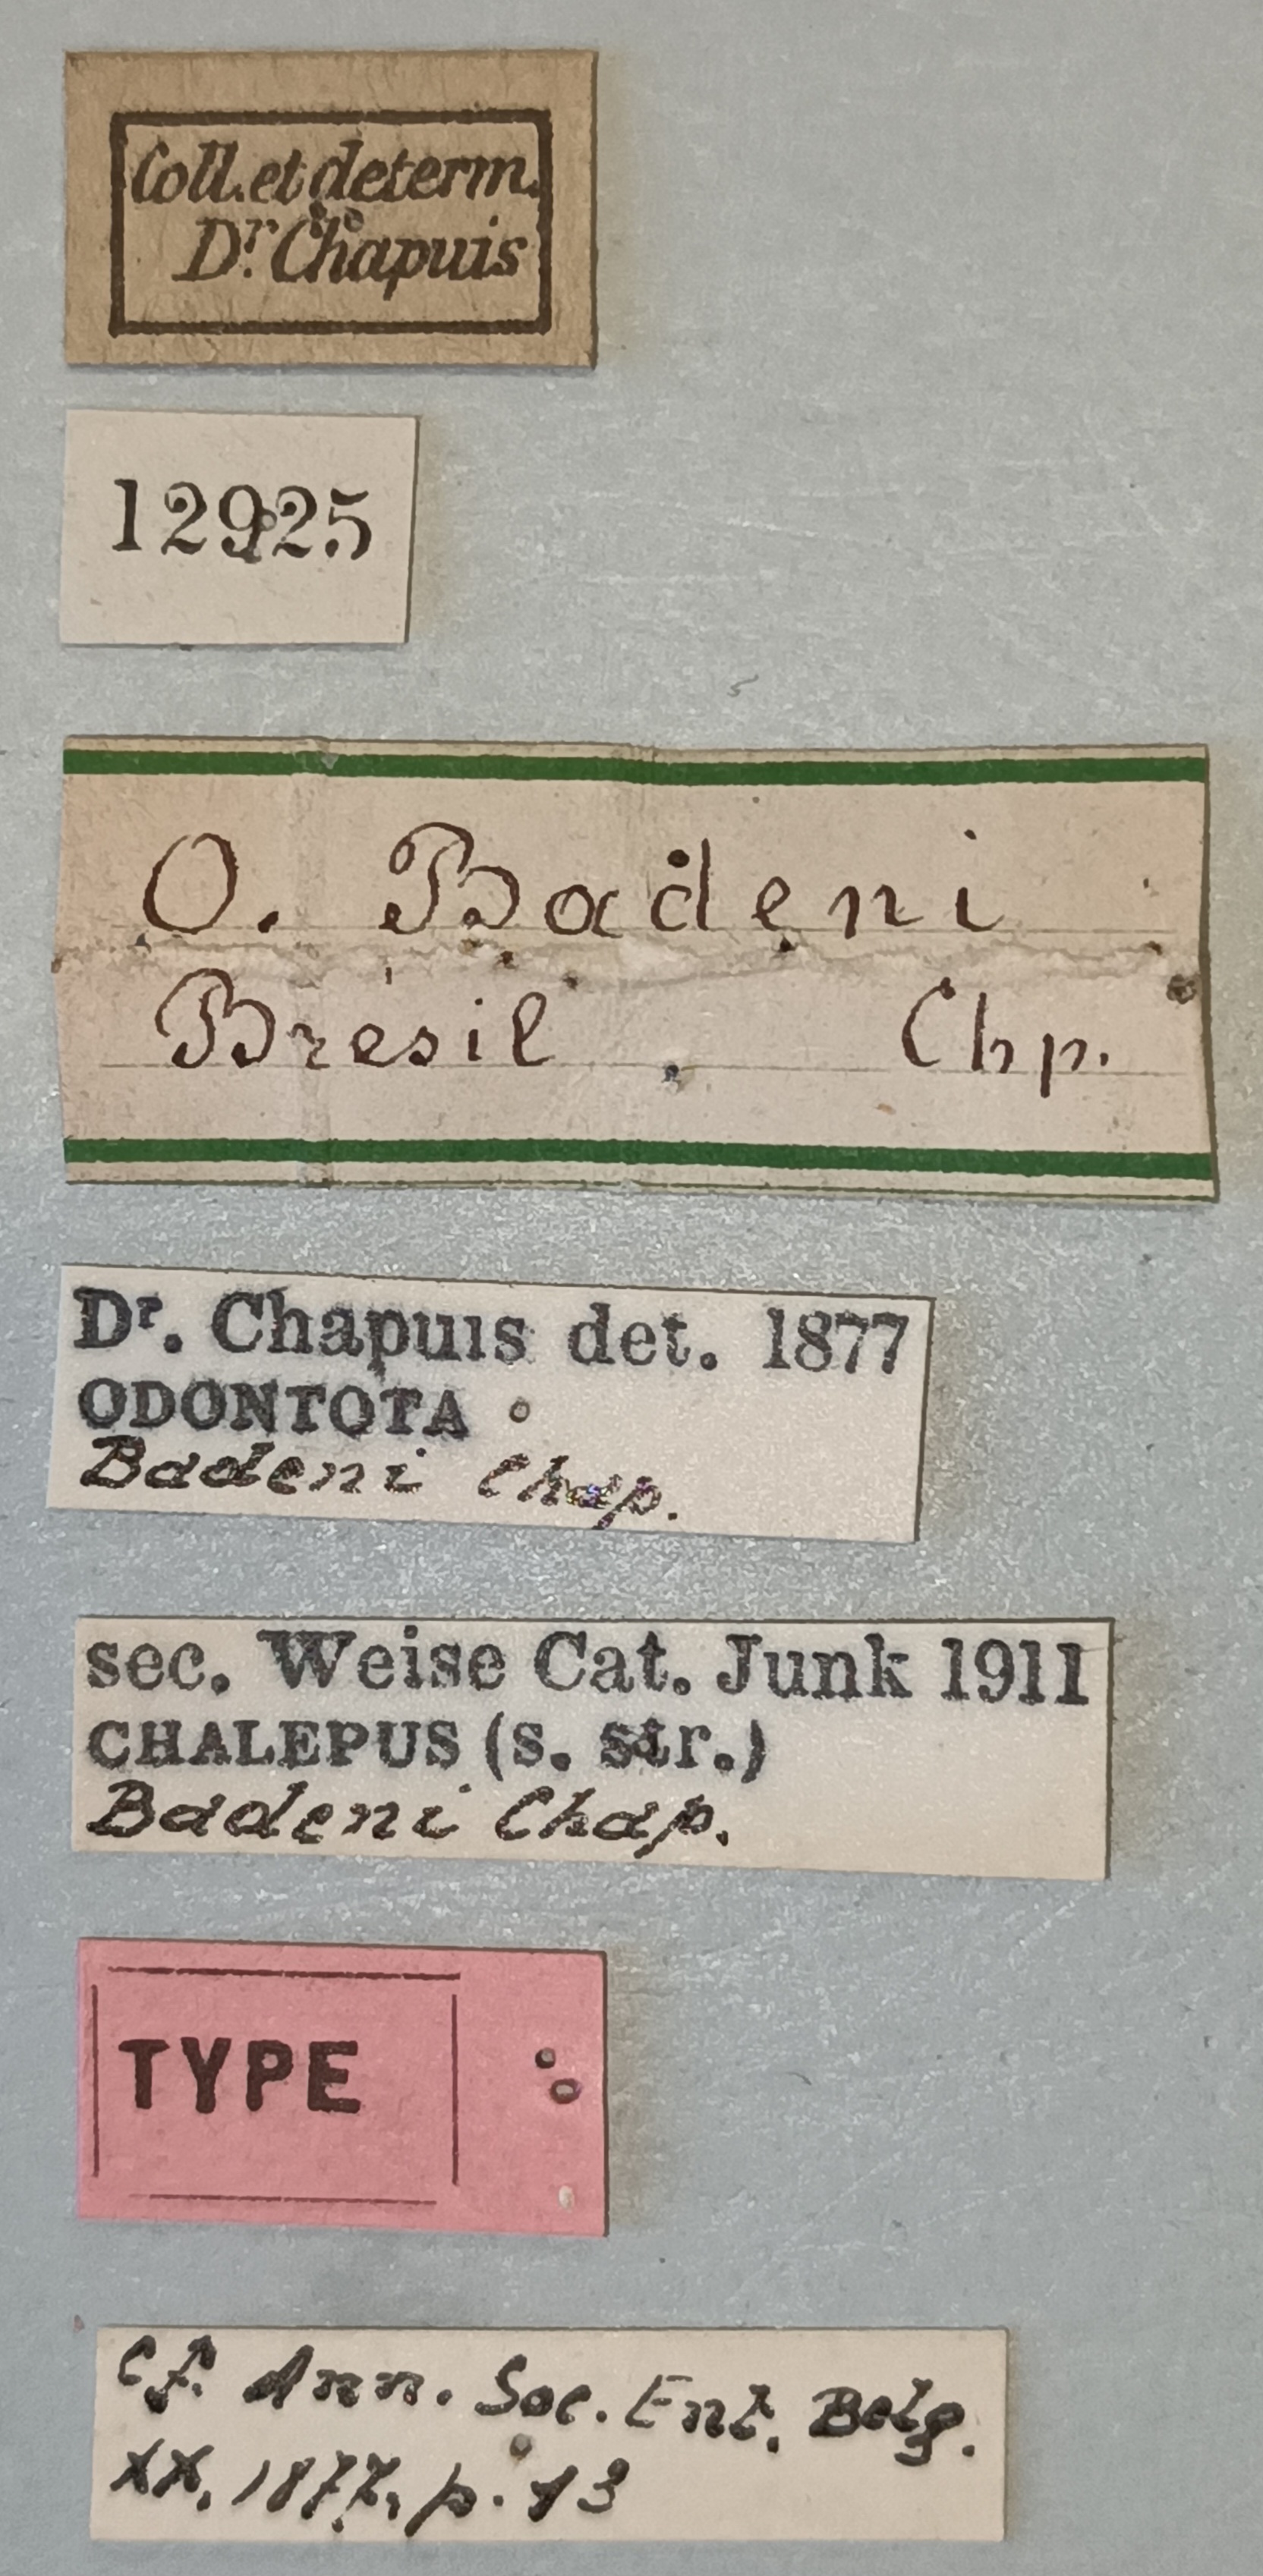 Coll. et determ.
Dr. Chapuis
12925
O. Badeni
Brésil . Chp.
Dr. Chapuis det. 1877
ODONTOTA
Badeni Chap.
sec. Weise Cat. Junk 1911
CHALEPUS (s. str.)
Badeni Chap.
TYPE
cf. Ann. Soc. Ent. Belg.
XX, 1877, p. 13